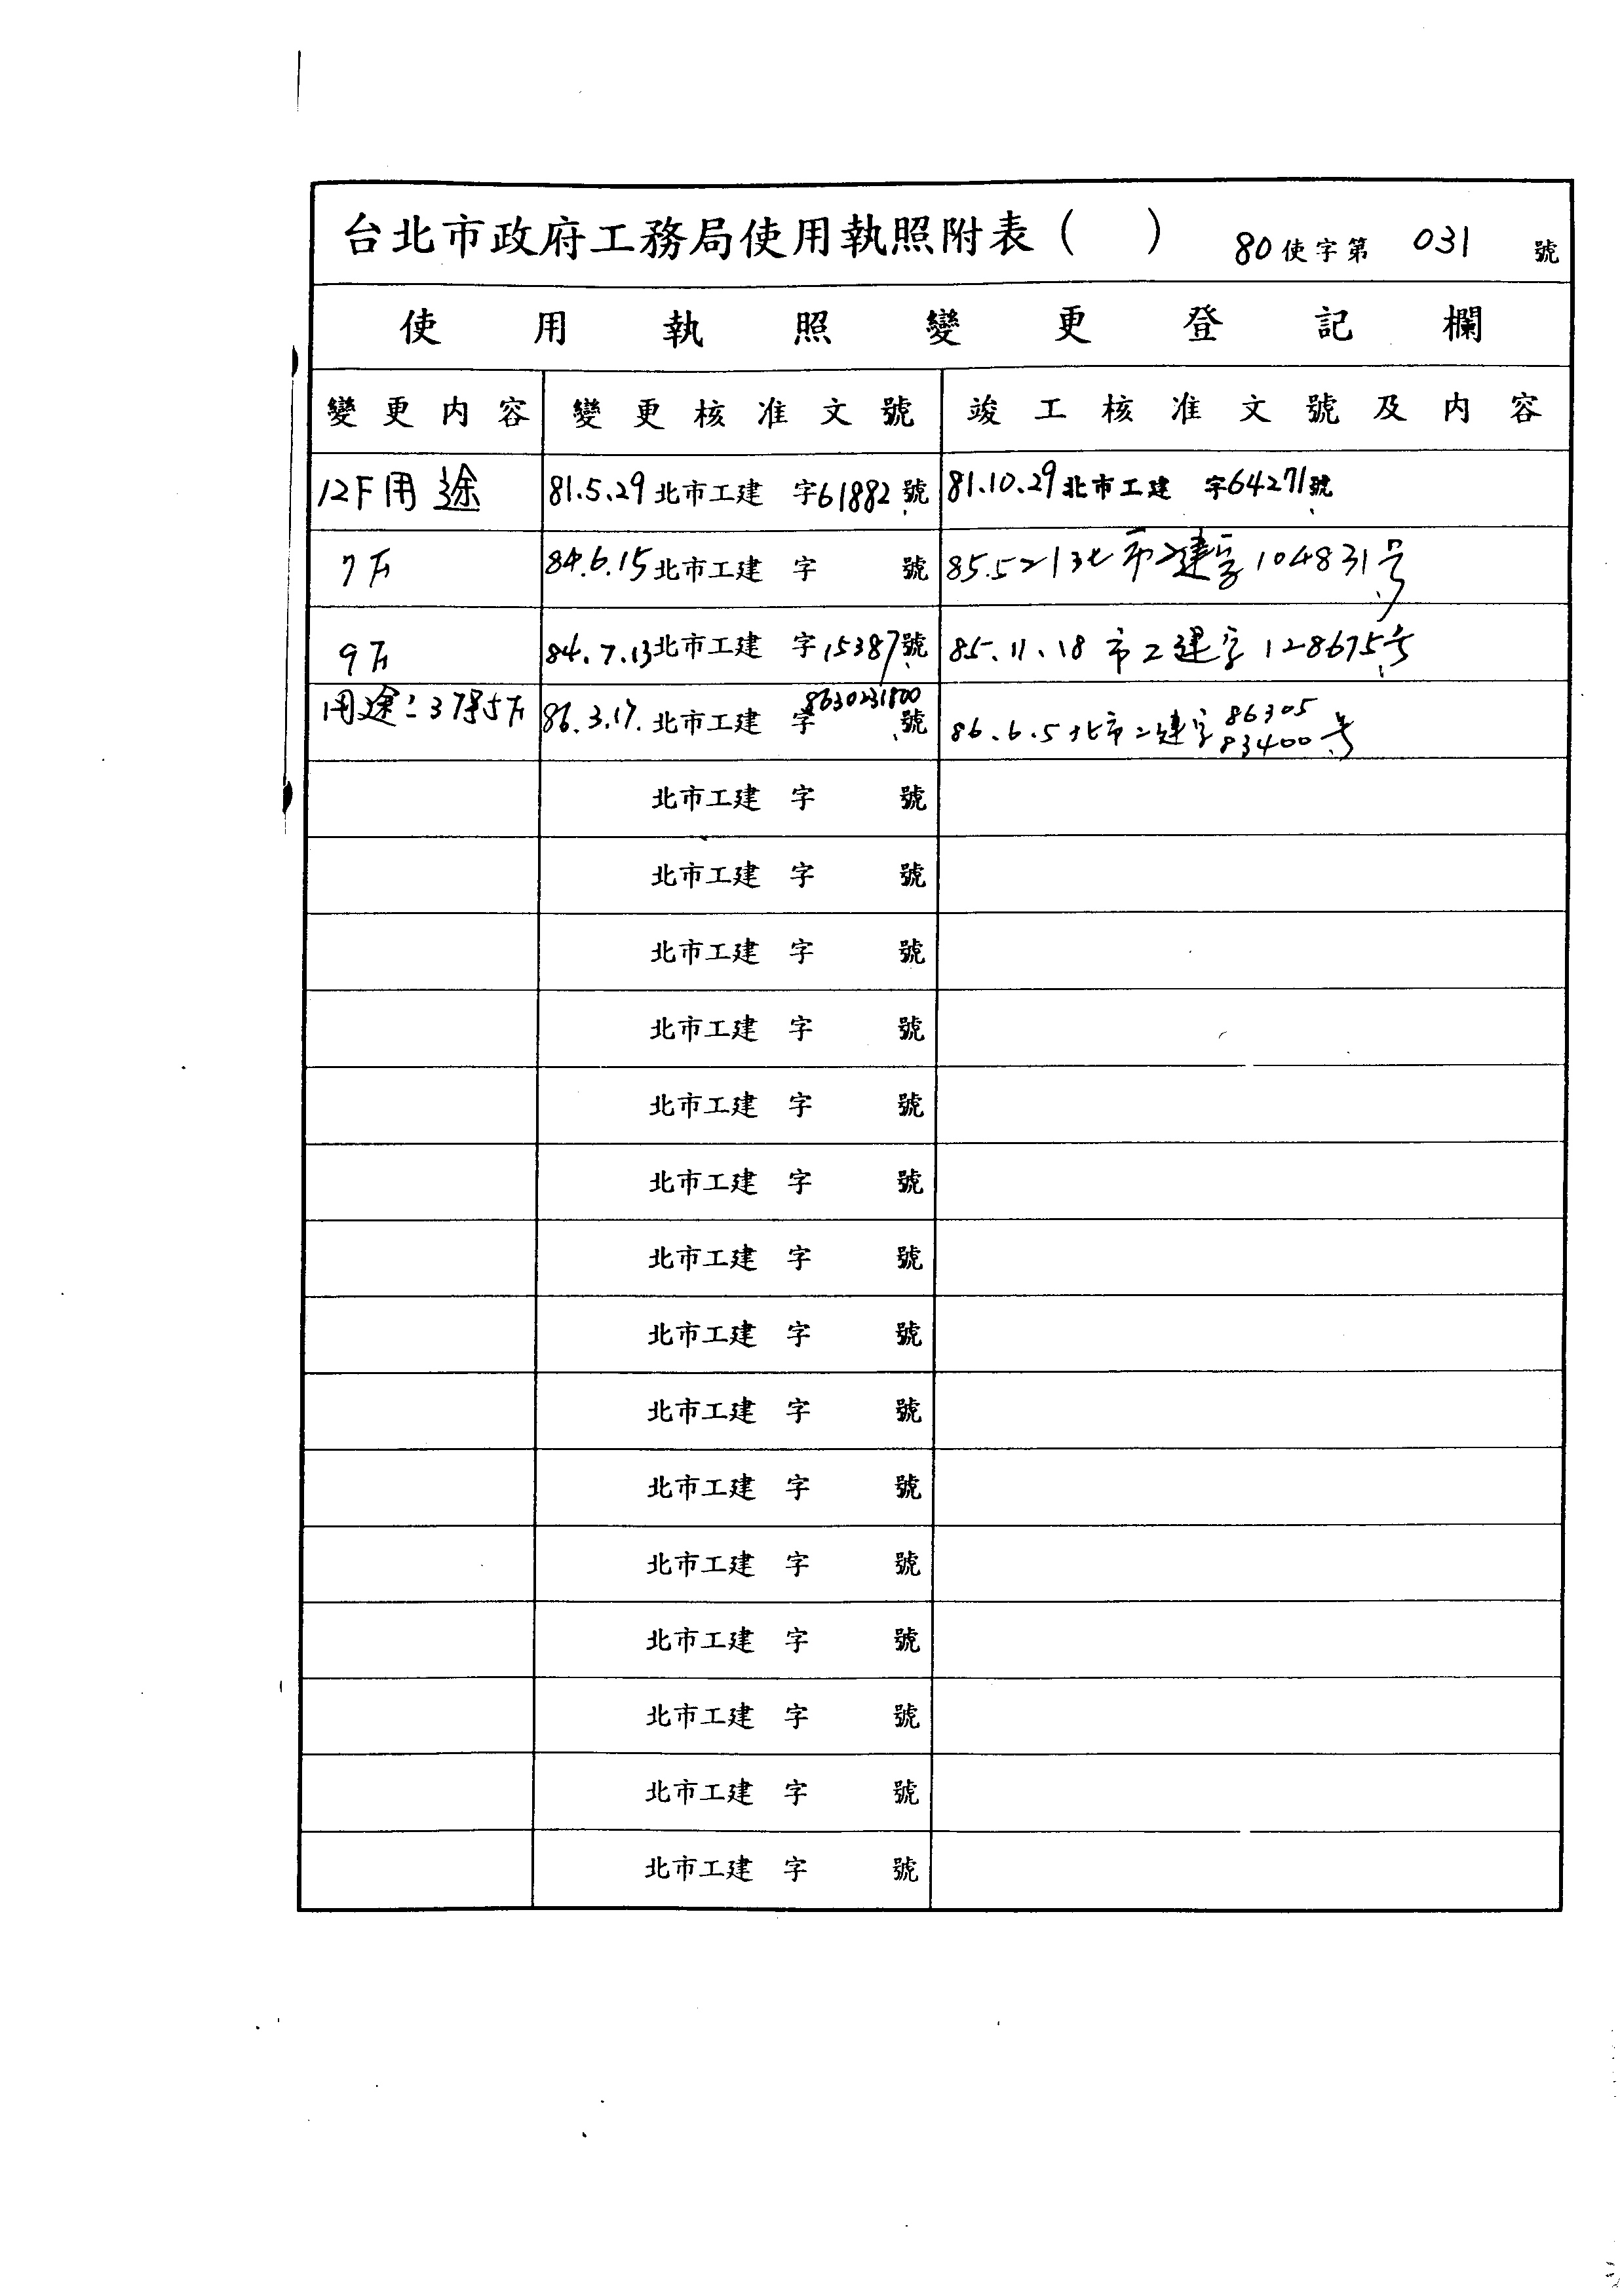 台北市政府工務局使用執照附表（　）　80使字第　031　號
使用執照變更登記欄
變更內容　變更核准文號　竣工核准文號及內容
12F用途　81.5.29北市工建　字61882號　81.10.29北市工建　字64271號
7F　84.6.15北市工建　字　號　85.5.21北市工建字104831号
9F　84.7.13北市工建　字15387號　85.11.18市工建字128675号
用途:37号5F　86.3.17.北市工建　字8630231800號　86.6.5北市工建字8630583400号
北市工建　字　號
北市工建　字　號
北市工建　字　號
北市工建　字　號
北市工建　字　號
北市工建　字　號
北市工建　字　號
北市工建　字　號
北市工建　字　號
北市工建　字　號
北市工建　字　號
北市工建　字　號
北市工建　字　號
北市工建　字　號
北市工建　字　號